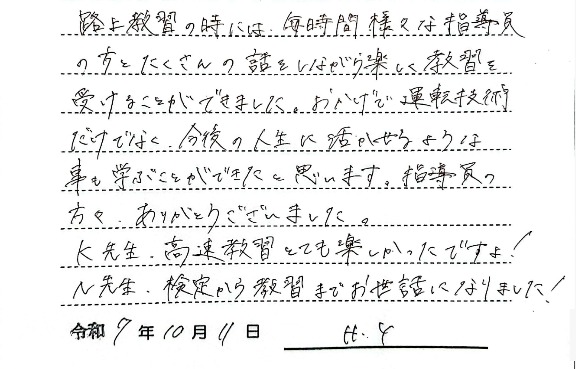 路上教習の時には、毎時間様々な指導員
の方とたくさんの話をしながら楽しく教習を
受けることができました。おかげで運転技術
だけでなく、今後の人生に活かせるような
事も学ぶことができたと思います。指導員の
方々、ありがとうございました。
K先生、高速教習とても楽しかったですよ!
N先生、検定から教習までお世話になりました!
令和7年10月11日 H.Y